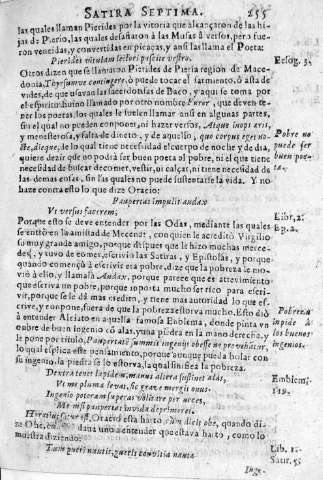 SATIRA SEPTIMA. 255
las quales llaman Pierides por la vitoria que alcançaron de las hi-
jas de Pierio, las quales desafiaron à las Musas à versos, pero fue-
ron vencidas, y convertidas en picaças, y ansi las llama el Poeta:
Pierides vitulam lectori pescite vestro.
Eclog. 3.
Otros dizen que se llamaron Pierides de Pieria region de Mace-
donia, Thyrsumve contingere, ò puede tocar el sarmiento, ò asta de
vides, de que usavan las sacerdotisas de Baco, y aqui se toma por
el espiritu divino llamado por otro nombre Furor, que deven te-
ner los poetas, los quales le suelen llamar ansi en algunas partes,
sin el qual no pueden componer, ni hazer versos, Atque inops æris,
y menesterosa, y falta de dinero, y de aquello, quo corpus eget no-
cte, dieque, de lo qual tiene necesidad el cuerpo de noche y de dia,
quiere dezir que no podrà ser buen poeta el pobre, ni el que tiene
necesidad de buscar de comer, vestir, ni calçar, ni tiene necesidad de
las demas cosas, sin las quales no puede sustentarse la vida. Y no
haze contra esto lo que dize Oracio:
Pobre no
puede ser
buen poe-
ta.
Paupertas impulit audax
Ut versus facerem,
Libr. 2.
Ep. 2.
Porque esto se deve entender por las Odas, mediante las quales
se entrò en la amistad de Mecenas, con quien le acreditò Virgilio
su muy grande amigo, porque despues que le hizo muchas merce-
des, y tuvo de comer, escrivio las Satiras, y Epistolas, y porque
quando començò à escrivir era pobre, dize que la pobreza le mo-
viò à ello, y llamala Audax, porque parece que es atrevimiento
que escriva un pobre, porque importa mucho ser rico para escri-
vir, porque se le dà mas credito, y tiene mas autoridad lo que es-
crive, y compone, fuera de que la pobreza estorva mucho. Esto diò
à entender Alciato en aquella famosa Emblema, donde pinta un
onbre de buen ingenio cò alas, y una piedra en la mano derecha, y
le pone por titulo, Paupertatem summis ingeniis obesse ne provehantur,
lo qual esplica este pensamiento, porque aunque pueda bolar con
su ingenio, la piedra se lo estorva, la qual sinifica la pobreza.
Pobreza
inpide à
los buenos
ingenios.
Dextra tenet lapidem, manus altera sustinet alas,
Ut me pluma levat, sic grave mergit onus.
Ingenio poteram superas volitare per arces,
Me nisi paupertas invida deprimeret.
Emblem.
119.
Oracio està harto
dando a uno a entender que estava harto, como lo
muestra diziendo:
Lib. 1.
Satir. 5.
Inge-